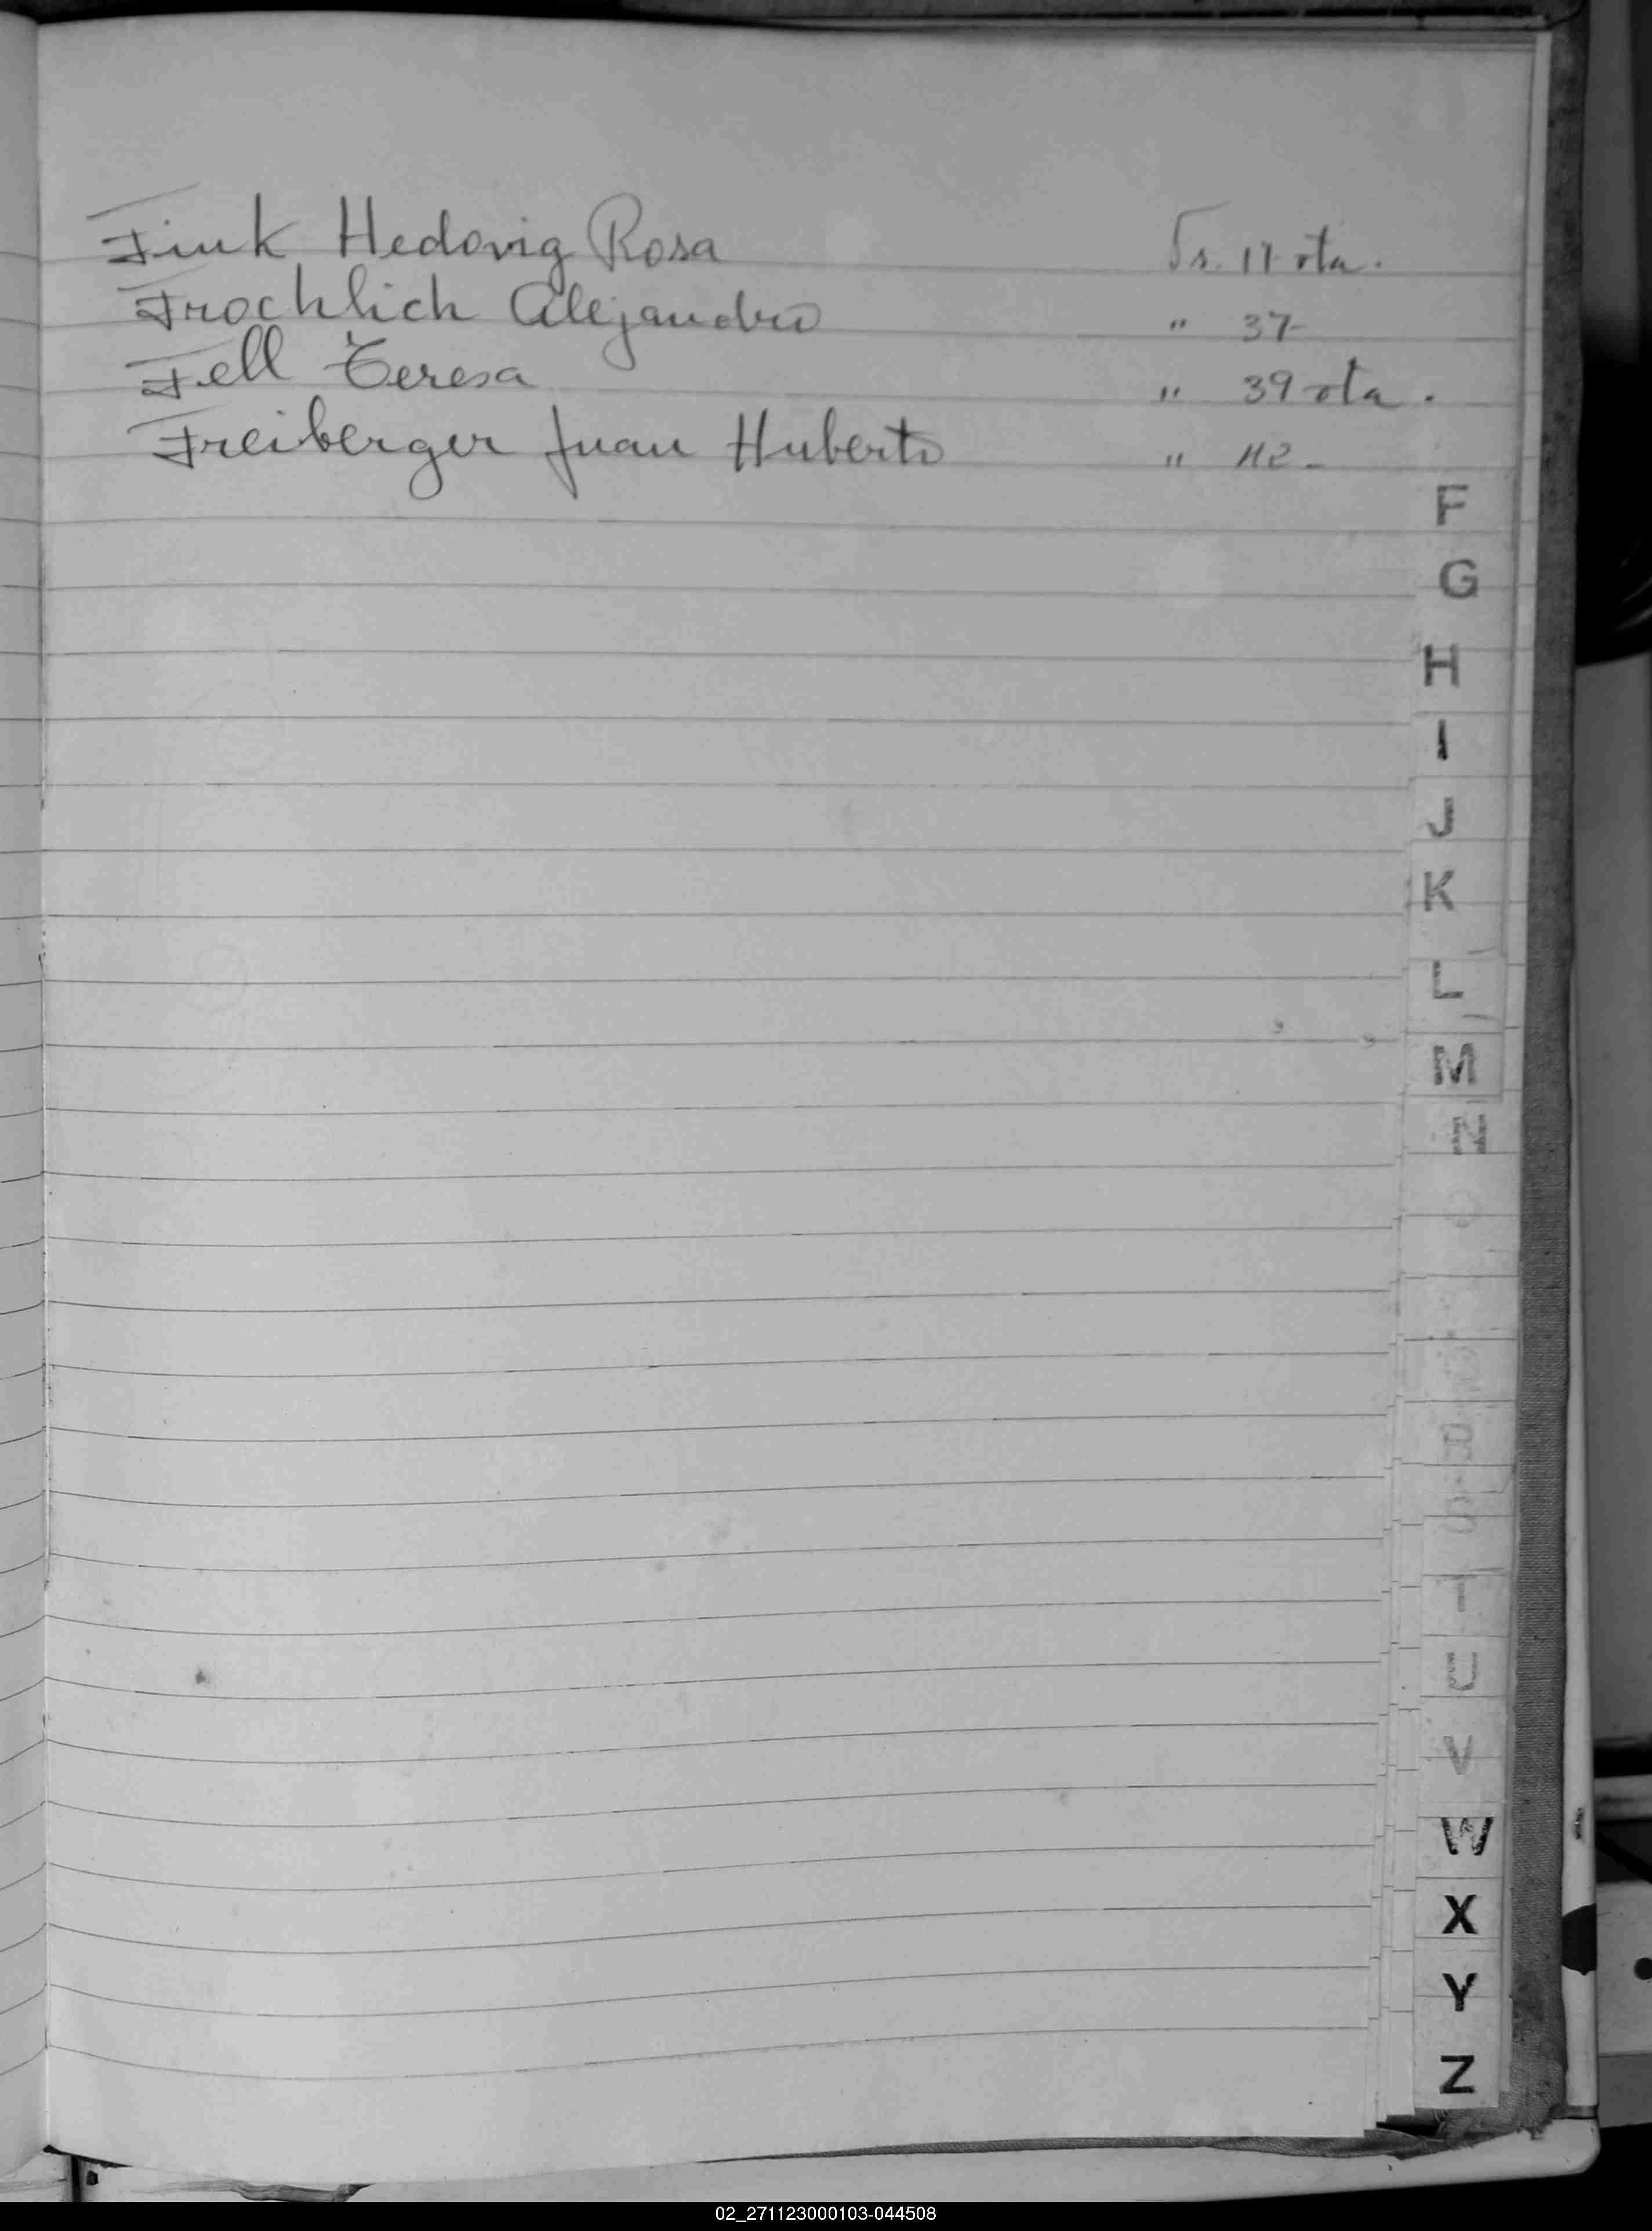 Fink Hedovig Rosa Fs. 17 vta.
Froehlich Alejandro " 37-
Fell Teresa " 39 vta.
Freiberger Juan Huberto " 42-
F
G
H
I
J
K
L
M
N
R
S
T
U
V
W
X
Y
Z
02_271123000103-044508